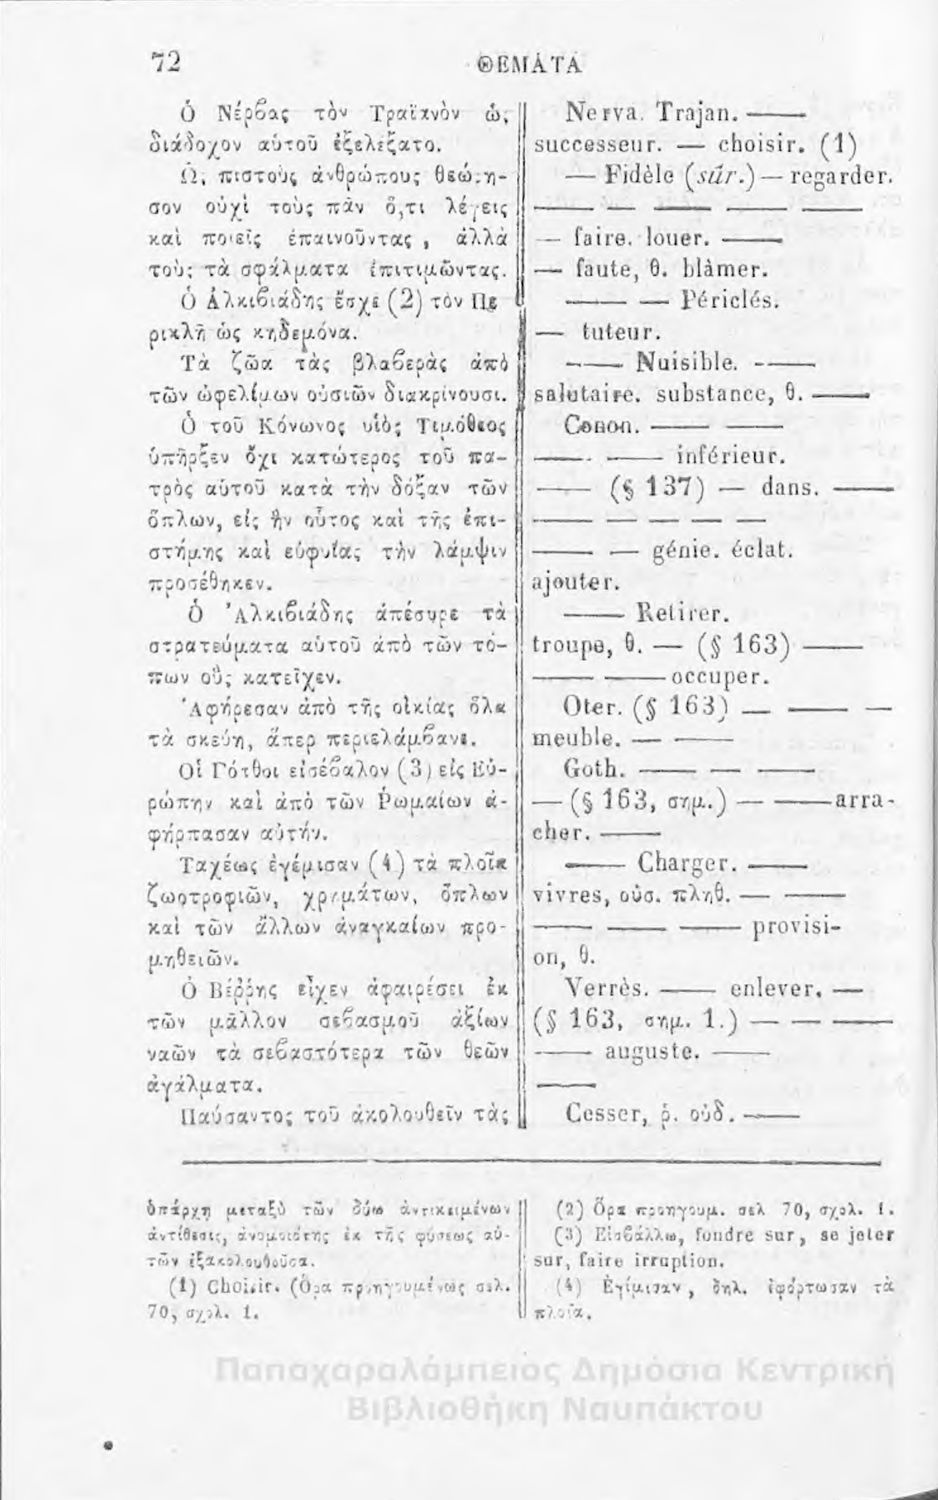 72
ΘΕΜΑΤΑ
Ὁ Νέρβας τὸν Τραϊανὸν ὡς
διάδοχον αὑτοῦ ἐξελέξατο.
Ὡς πιστοὺς ἀνθρώπους θεώρη-
σον οὐχὶ τοὺς πᾶν ὅ,τι λέγεις
καὶ ποιεῖς ἐπαινοῦντας , ἀλλὰ
τοὺς τὰ σφάλματα ἐπιτιμῶντας.
Ὁ Ἀλκιβιάδης ἔσχε (2) τὸν Πε
ρικλῆ ὡς κηδεμόνα.
Τὰ ζῶα τὰς βλαβερὰς ἀπὸ
τῶν ὠφελίμων οὐσιῶν διακρίνουσι.
Ὁ τοῦ Κόνωνος υἱὸς Τιμόθεος
ὑπῆρξεν ὄχι κατώτερος τοῦ πα-
τρὸς αὑτοῦ κατὰ τὴν δόξαν τῶν
ὅπλων, εἰς ἣν οὗτος καὶ τῆς ἐπι-
στήμης καὶ εὐφυΐας τὴν λάμψιν
προσέθηκεν.
Ὁ Ἀλκιβιάδης ἀπέσυρε τὰ
στρατεύματα αὑτοῦ ἀπὸ τῶν τό-
πων οὓς κατεῖχεν.
Ἀφῄρεσαν ἀπὸ τῆς οἰκίας ὅλα
τὰ σκεύη, ἅπερ περιελάμβανε.
Οἱ Γότθοι εἰσέβαλον (3) εἰς Εὐ-
ρώπην καὶ ἀπὸ τῶν Ῥωμαίων ἀ-
φήρπασαν αὐτήν.
Ταχέως ἐγέμισαν (4) τὰ πλοῖα
ζωοτροφιῶν, χρημάτων, ὅπλων
καὶ τῶν ἄλλων ἀναγκαίων προ-
μηθειῶν.
Ὁ Βέῤῥης εἶχεν ἀφαιρέσει ἐκ
τῶν μᾶλλον σεβασμοῦ ἀξίων
ναῶν τὰ σεβαστότερα τῶν θεῶν
ἀγάλματα.
Παύσαντος τοῦ ἀκολουθεῖν τὰς
Nerva. Trajan. ——
successeur. — choisir. (1)
— Fidèle (sûr.) — regarder.
—— — —— —— ——
— faire. louer. ——
— faute, θ. blâmer.
—— — Périclés.
— tuteur.
—— Nuisible. ——
salutaire. substance, θ. ——
Conon. —— ——
—— —— inférieur.
—— (§ 137) — dans. ——
—— — — — —
—— — génie. éclat.
ajouter.
—— Retirer.
troupe, θ. — (§ 163) ——
—— —— occuper.
Oter. (§ 163) — —— —
meuble. — ——
Goth. —— — ——
— (§ 163, σημ.) — —— arra-
cher. ——
—— Charger. ——
vivres, οὐσ. πληθ. — ——
—— —— —— provisi-
on, θ.
Verrès. —— enlever. —
(§ 163, σημ. 1.) — — ——
—— auguste. ——
——
Cesser, ῥ. οὐδ. ——
ὑπάρχῃ μεταξὺ τῶν δύω ἀντικειμένων
ἀντίθεσις, ἀνομοιότης ἐκ τῆς φύσεως αὐ-
τῶν ἐξακολουθοῦσα.
(1) Choisir. (Ὅρα προηγουμένως σελ.
70, σχολ. 1.
(2) Ὅρα προηγουμ. σελ 70, σχολ. 1.
(3) Εἰσβάλλω, fondre sur, se jeter
sur, faire irruption.
(4) Ἐγέμισαν, δηλ. ἐφόρτωσαν τὰ
πλοῖα.
Παπαχαραλάμπειος Δημόσια Κεντρική
Βιβλιοθήκη Ναυπάκτου